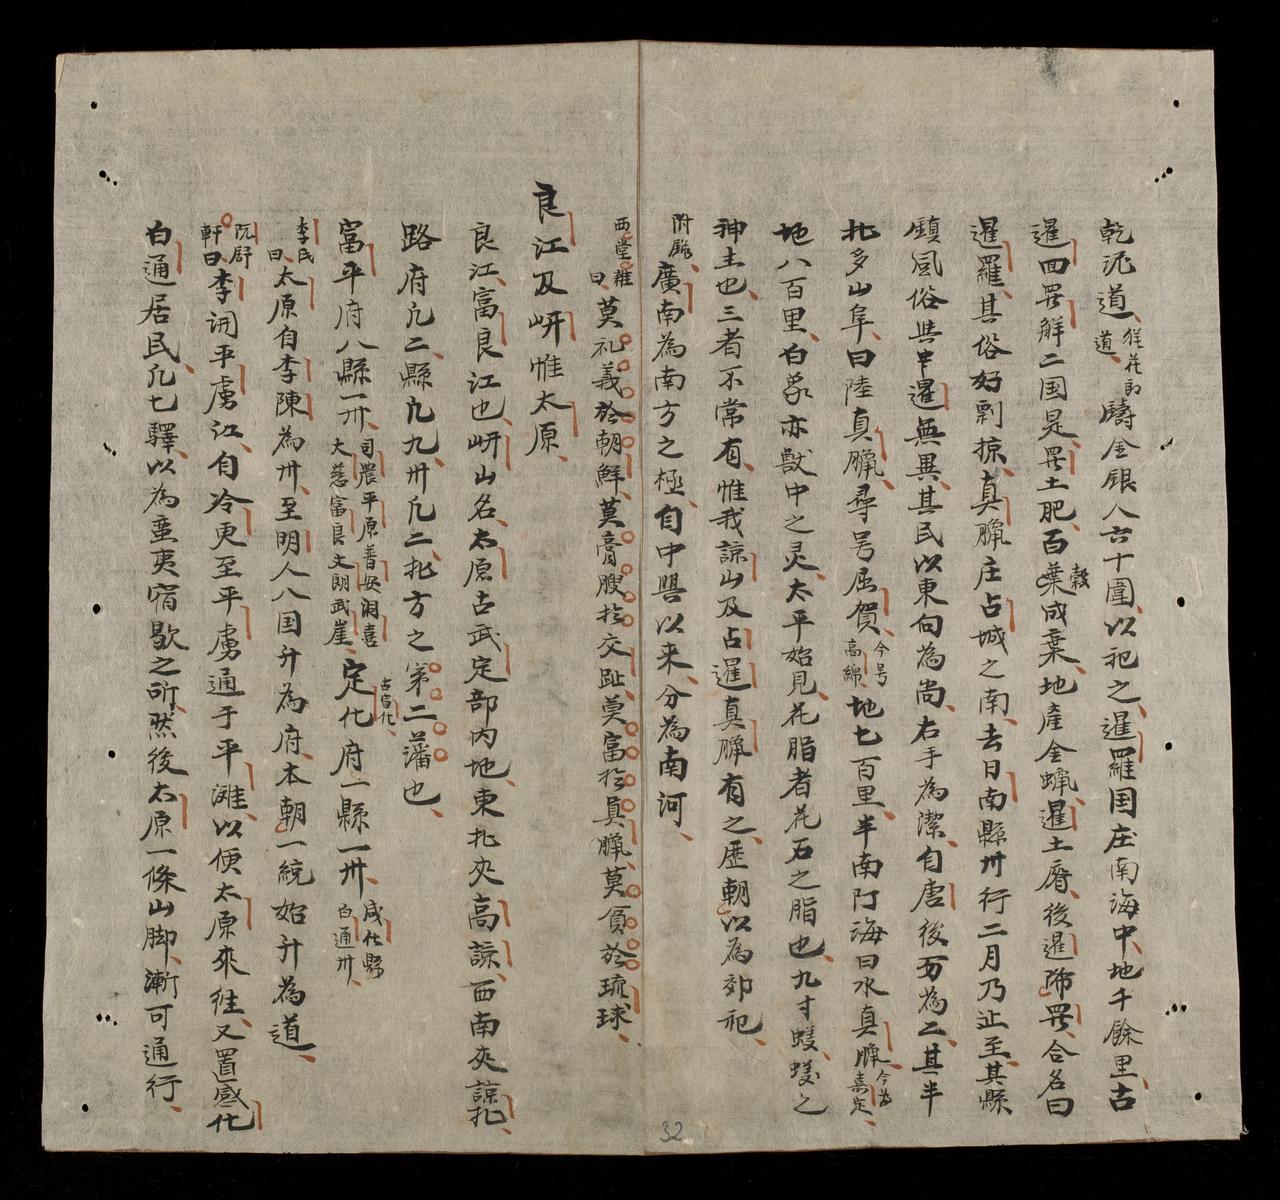 乾沉道鮮花即道鑄金銀人六十圍以祀之暹羅国在南海中地千餘里古
暹囬罘觧二国是罘土肥百榖葉成棄地產金蝋暹土瘠後暹降罘合名曰
暹羅其俗好剽掠真臘在占城之南去日南縣卅行二月乃止至其縣
鎮風俗與中暹無異其民以東向為尚右手為潔自唐後分為二其半
北多山阜曰陸真臘尋号屈賀今号高綿地七百里半南阿海曰水真臘今為嘉定
地八百里白象亦獸中之灵太平始見花脂者花石之脂也九寸蟻蟻之
神主也三者不常有惟我諒山及占暹真臘有之歷朝以為郊祀
附錄廣南為南方之極自中興以来分為南河
西堂雜曰莫礼義於朝鮮莫膏腴扵交趾莫富扵真臘莫貧於琉球
良江及岍惟太原
良江富良江也岍山名太原古武定部内地東北夾高諒西南夾諒北
路府凢二縣凢九卅凢二北方之第二藩也
富平府八縣一卅司農平原普安洞喜大慈富良文朗武崖定化府古宣化一縣一卅咸化縣白通卅
李氏曰太原自李陳為卅至明人入国升為府本朝一統始升為道
阮舒軒曰李開平虜江自冷更至平虜通于平灘以便太原來往又置感化
白通居民凢七驛以為蛮夷宿歇之所然後太原一條山脚漸可通行
32